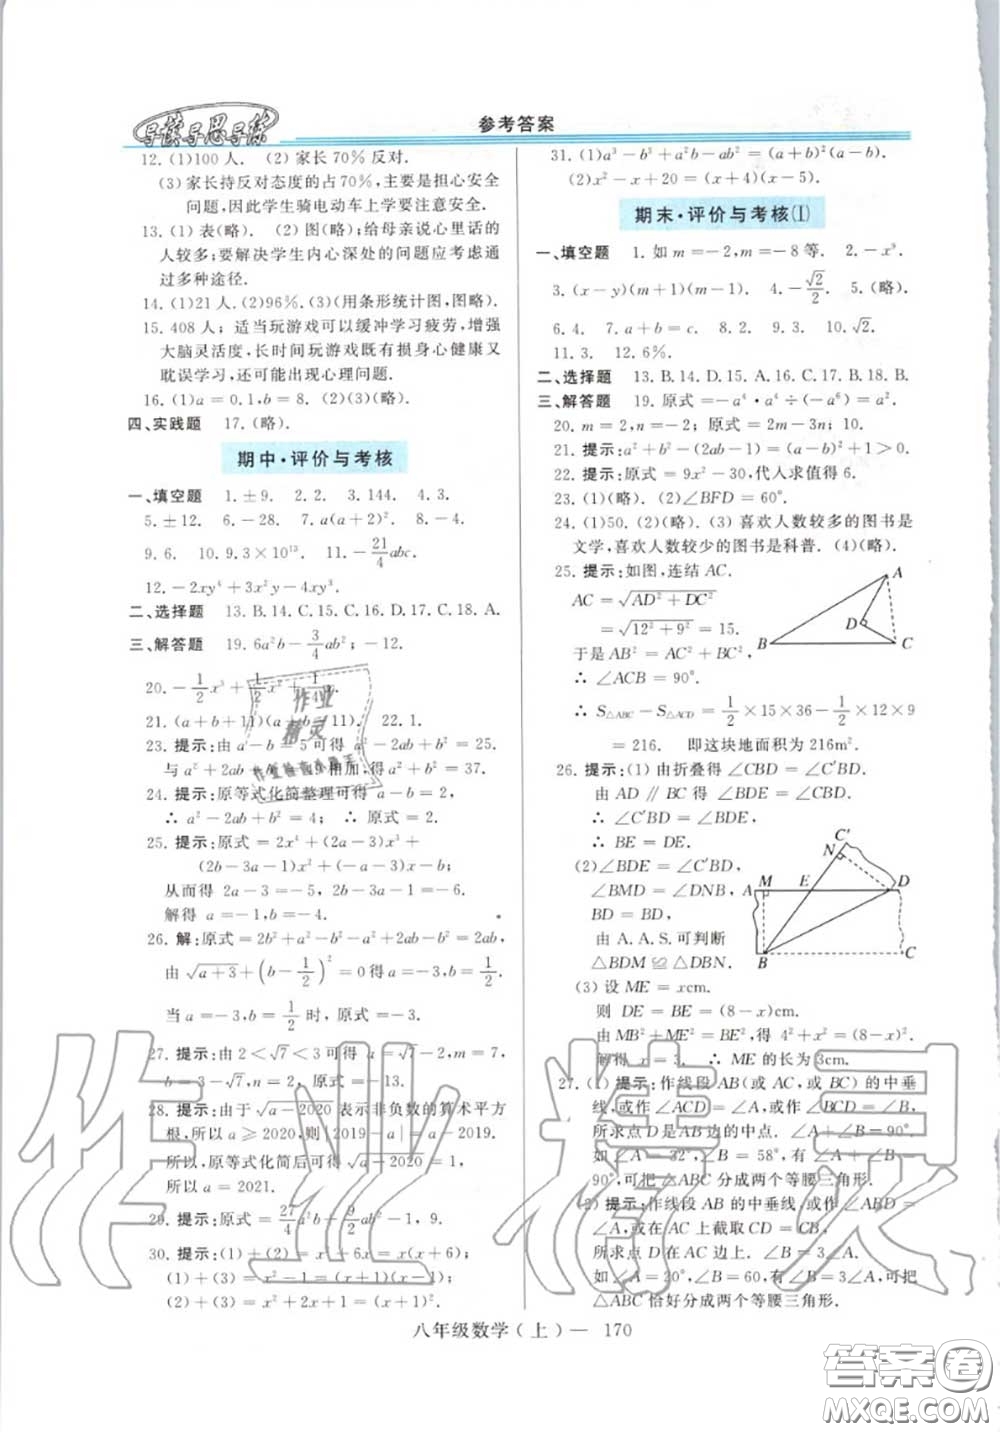 导读导思导练
参考答案
12. (1)100人. (2) 家长70%反对.
(3) 家长持反对态度的占70%,主要是担心安全
问题,因此学生骑电动车上学要注意安全.
13. (1) 表(略). (2) 图(略);给母亲说心里话的
人较多;要解决学生内心深处的问题应考虑通
过多种途径.
14. (1)21人. (2)96%. (3)(用条形统计图,图略).
15. 408人;适当玩游戏可以缓冲学习疲劳,增强
大脑灵活度,长时间玩游戏既有损身心健康又
耽误学习,还可能出现心理问题.
16. (1)a=0.1,b=8. (2)(3)(略).
四、实践题 17. (略).
期中·评价与考核
一、填空题 1. ±9. 2. 2. 3. 144. 4. 3.
5. ±12. 6. -28. 7. a(a+2)². 8. <.
9. 6. 10. 9.3×10¹³. 11. -21/4 abc.
12. -2xy⁴+3x²y³-4xy³.
二、选择题 13. B. 14. C. 15. C. 16. D. 17. C. 18. A.
三、解答题 19. 6a²b-3/4 ab²;-12.
20. -1/2 x³+1/2 x²+1/4 x.
21. (a+b+11)(a+b-11). 22. 1.
23. 提示:由a-b=5可得a²-2ab+b²=25.
与a²+2ab+b²=49相加,得a²+b²=37.
24. 提示:原等式化简整理可得a-b=2,
∴ a²-2ab+b²=4; ∴ 原式=2.
25. 提示:原式=2x⁴+(2a-3)x³+
(2b-3a-1)x²+(a-3b)x-b;
从而得 2a-3=-5, 2b-3a-1=-6.
解得 a=-1,b=-4.
26. 解:原式=2b²+a²-b²-a²+2ab-b²=2ab,
由√(a+3)+(b-1/2)²=0得a=-3,b=1/2.
当a=-3,b=1/2时,原式=-3.
27. 提示:由2<√7<3可得a=-2,m=7,
b=3-√7,n=2, 原式=-13.
28. 提示:由于√(a-2020)表示非负数的算术平方
根,所以a≥2020,则|2019-a|=a-2019.
所以,原等式化简后可得√(a-2020)=1,
所以a=2021.
29. 提示:原式=27/4 a²b-9/2 ab²-1,9.
30. 提示:(1)+(2)=x²+6x=x(x+6);
(1)+(3)=x²-1=(x+1)(x-1);
(2)+(3)=x²+2x+1=(x+1)².
31. (1)a³-b³+a²b-ab²=(a+b)²(a-b).
(2)x²-x+20=(x+4)(x-5).
期末·评价与考核(Ⅰ)
一、填空题 1. 如m=-2,m=-8等. 2. -x⁹.
3. (x-y)(m+1)(m-1). 4. -√2/2. 5. (略).
6. 4. 7. a+b=c. 8. 2. 9. 3. 10. √2.
11. 3. 12. 6%.
二、选择题 13. B. 14. D. 15. A. 16. C. 17. B. 18. B.
三、解答题 19. 原式=-a⁴·a⁴÷(-a⁶)=a².
20. m=2,n=-2; 原式=2m-3n;10.
21. 提示:a²+b²-(2ab-1)=(a-b)²+1>0.
22. 提示:原式=9x²-30,代人求值得6.
23. (1)(略). (2)∠BFD=60°.
24. (1)50. (2)(略). (3) 喜欢人数较多的图书是
文学,喜欢人数较少的图书是科普. (4)(略).
25. 提示:如图,连结AC.
AC=√(AD²+DC²)
=√(12²+9²)=15.
于是AB²=AC²+BC²,
∴ ∠ACB=90°.
∴ S△ABC-S△ACD=1/2×15×36-1/2×12×9
=216. 即这块地面积为216m².
A
D
B
C
26. 提示:(1) 由折叠得∠CBD=∠C′BD.
由AD∥BC得∠BDE=∠CBD.
∴ ∠C′BD=∠BDE,
∴ BE=DE.
(2)∠BDE=∠C′BD,
∠BMD=∠DNB,
BD=BD,
由A.A.S.可判断
△BDM≌△DBN.
A M E N C′ D
B C
(3) 设ME=xcm.
则 DE=BE=(8-x)cm.
由MB²+ME²=BE²,得 4²+x²=(8-x)².
解得 x=3. ∴ ME的长为3cm.
27. (1) 提示:作线段AB(或AC,或BC)的中垂
线,或作∠ACD=∠A,或作∠BCD=∠B,
所求点D是AB的中点. ∠A+∠B=90°.
如∠A=32°,∠B=58°,有∠A+∠B=
90°,可把△ABC分成两个等腰三角形.
(2) 提示:作线段AB的中垂线,或作∠ABD=
∠A,或在AC上截取CD=CB.
所求点D在AC边上. ∠B=3∠A.
如∠A=20°,∠B=60,有∠B=3∠A,可把
△ABC恰好分成两个等腰三角形.
八年级数学(上)— 170
作业精灵
作业精灵
答案圈
MXQE.COM